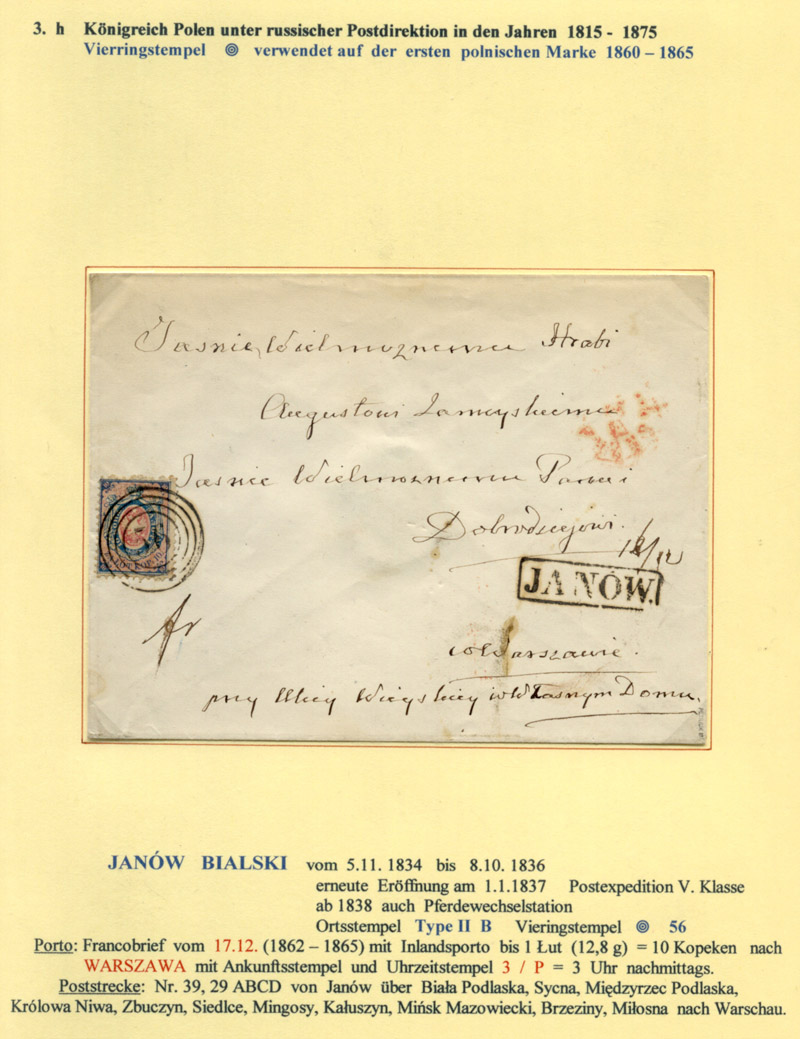 3. h Königreich Polen unter russischer Postdirektion in den Jahren 1815 - 1875
Vierringstempel verwendet auf der ersten polnischen Marke 1860 – 1865
Jasnie Wielmoznemu Hrabi
Augustowi Zamoyskiemu
Jasnie Wielmoznemu Panu i
Dobrodziejowi.
JANÓW.
fr
w Warszawie.
przy Ulicy Wieyskiey w Własnym Domu.
JANÓW BIALSKI vom 5.11. 1834 bis 8.10. 1836
erneute Eröffnung am 1.1.1837 Postexpedition V. Klasse
ab 1838 auch Pferdewechselstation
Ortsstempel Type II B Vieringstempel 56
Porto: Francobrief vom 17.12. (1862 – 1865) mit Inlandsporto bis 1 Łut (12,8 g) = 10 Kopeken nach
WARSZAWA mit Ankunftsstempel und Uhrzeitstempel 3 / P = 3 Uhr nachmittags.
Poststrecke: Nr. 39, 29 ABCD von Janów über Biała Podlaska, Sycna, Międzyrzec Podlaska,
Królowa Niwa, Zbuczyn, Siedlce, Mingosy, Kałuszyn, Mińsk Mazowiecki, Brzeziny, Miłosna nach Warschau.